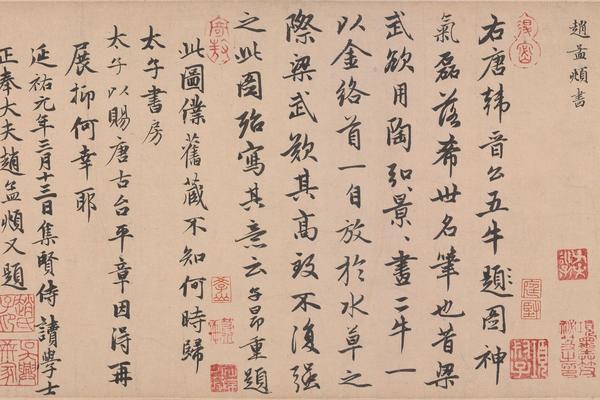 趙孟頫書
右唐韓晉公五牛題圖神
氣磊落希世名筆也昔梁
武欲用陶弘景、畫二牛一
以金絡首一自放於水草之
際梁武歎其高致不復強
之此圖殆寫其意云子昂重題
此圖僕舊藏不知何時歸
太子書房
太子以賜唐古台平章因得再
展抑何幸耶
延祐元年三月十三日集賢侍讀學士
正奉大夫趙孟頫又題